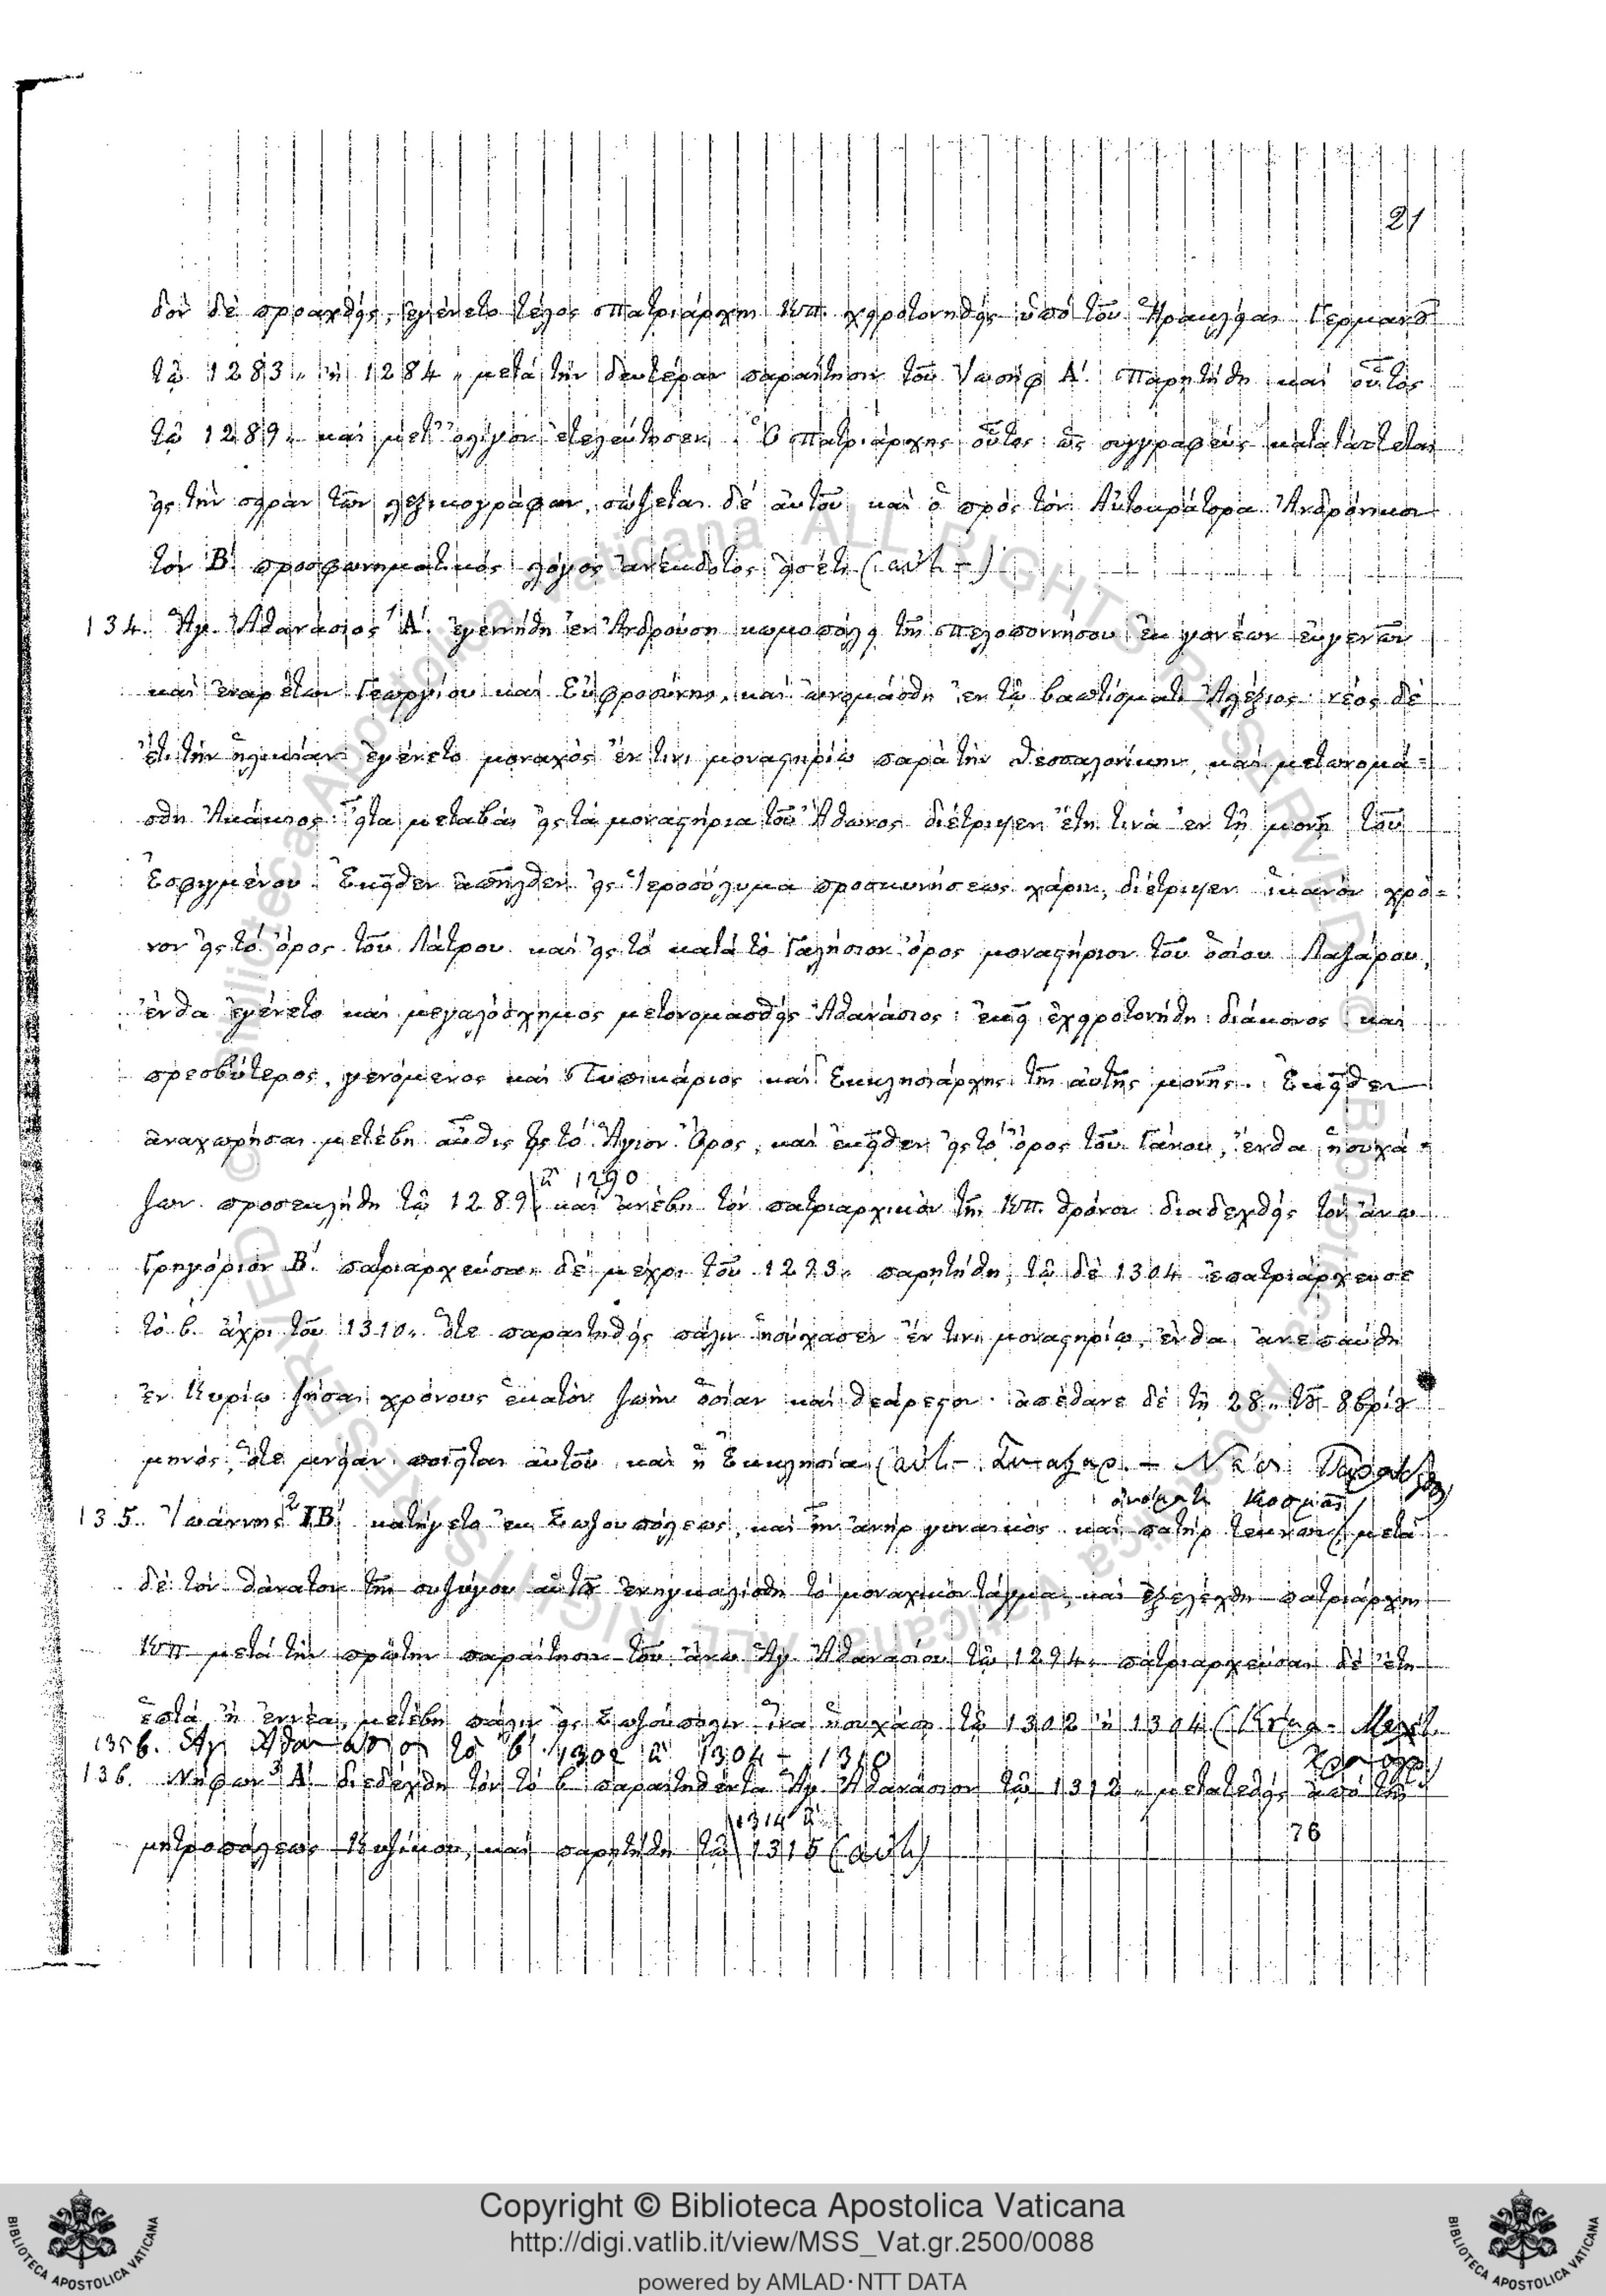 21
δόν δὲ προαχθείς, ἐγένετο τέλος Πατριάρχης Κπ. χειροτονηθείς ὑπό τοῦ Ἡρακλείας Γερμανοῦ
τῷ 1283,, ἤ 1284,, μετά τήν δευτέραν παραίτησιν τοῦ Ἰωσήφ Α΄. Παρῃτήθη καί οὗτος
τῷ 1289,, καί μετ' ὀλίγον ἐτελεύτησεν. Ὁ Πατριάρχης οὗτος ὡς συγγραφεύς κατατάττεται
εἰς τήν σειράν τῶν λεξικογράφων, σώζεται δέ αὐτοῦ καί ὁ πρός τόν Αὐτοκράτορα Ἀνδρόνικον
τόν Β΄ προσφωνηματικός λόγος ἀνέκδοτος εἰσέτι (αὐτ. -)
134. Ἅγ. Ἀθανάσιος Α΄. ἐγεννήθη ἐν Ἀνδρούσῃ κωμοπόλει τῆς Πελοποννήσου ἐκ γονέων εὐγενῶν
καί ἐναρέτων Γεωργίου καί Εὐφροσύνης, καί ὠνομάσθη ἐν τῷ βαπτίσματι Ἀλέξιος· νέος δέ
ἔτι τήν ἡλικίαν ἐγένετο μοναχός ἔν τινι μοναστηρίῳ παρά τήν Θεσσαλονίκην, καί μετωνομά-
σθη Ἀκάκιος· εἶτα μεταβάς εἰς τά μοναστήρια τοῦ Ἄθωνος διέτριψεν ἔτη τινά ἐν τῇ μονῇ τοῦ
Ἐσφιγμένου. Ἐκεῖθεν ἀπῆλθεν εἰς Ἱεροσόλυμα προσκυνήσεως χάριν, διέτριψεν ἱκανόν χρό-
νον εἰς τό ὄρος τοῦ Λάτρου καί εἰς τό κατά τό Γαλήσιον ὄρος μοναστήριον τοῦ ὁσίου Λαζάρου,
ἔνθα ἐγένετο καί μεγαλόσχημος μετονομασθείς Ἀθανάσιος· ἐκεῖ ἐχειροτονήθη διάκονος καί
πρεσβύτερος, γενόμενος καί Τυπικάριος καί Ἐκκλησιάρχης τῆς αὐτῆς μονῆς. Ἐκεῖθεν
ἀναχωρήσας μετέβη αὖθις εἰς τό Ἅγιον Ὄρος, καί ἐκεῖθεν εἰς τό ὄρος τοῦ Γάνου, ἔνθα ἡσυχά-
ἤ 1290
ζων προσεκλήθη τῷ 1289,, καί ἀνέβη τόν πατριαρχικόν τῆς Κπ. θρόνον διαδεχθείς τόν ἄνω
Γρηγόριον Β΄. πατριαρχεύσας δέ μέχρι τοῦ 1293,, παρῃτήθη, τῷ δέ 1304 ἐπατριάρχευσε
τό β. ἄχρι τοῦ 1310,, ὅτε παραιτηθείς πάλιν ἡσύχασεν ἔν τινι μοναστηρίῳ, ἔνθα ἀνεπαύθη
ἐν Κυρίῳ ζήσας χρόνους ἑκατόν ζωήν ὁσίαν καί θεάρεστον. ἀπέθανε δέ τῇ 28,, τοῦ 8βρίου
μηνός, ὅτε μνείαν ποιεῖται αὐτοῦ καί ἡ Ἐκκλησία (αὐτ. - Συναξαρ. - Νέον
ὀνόματι Κοσμᾶς
135. Ἰωάννης ΙΒ΄ κατήγετο ἐκ Σωζουπόλεως, καί ἦν ἀνήρ γυναικός καί πατήρ τέκνων, μετά
δέ τόν θάνατον τῆς συζύγου αὐτοῦ ἐνηγκαλίσθη τό μοναχικόν τάγμα, καί ἐξελέχθη πατριάρχης
Κπ μετά τήν πρώτην παραίτησιν τοῦ ἄνω Ἁγ. Ἀθανασίου τῷ 1294,, πατριαρχεύσας δέ ἔτη
ἑπτά ἤ ἐννέα, μετέβη πάλιν εἰς Σωζούπολιν ἵνα ἡσυχάσῃ τῷ 1302 ἤ 1304
135 β. Ἅγ Ἀθανάσιος τό β΄. 1302 ἤ 1304 - 1310
136. Νήφων Α΄. διεδέχθη τόν τό β παραιτηθέντα Ἅγ. Ἀθανάσιον τῷ 1312,, μετατεθείς ἀπό τῆς
1314 ἤ
μητροπόλεως Κυζίκου, καί παρῃτήθη τῷ 1315 (αὐτ.)
76
Copyright © Biblioteca Apostolica Vaticana
http://digi.vatlib.it/view/MSS_Vat.gr.2500/0088
powered by AMLAD·NTT DATA